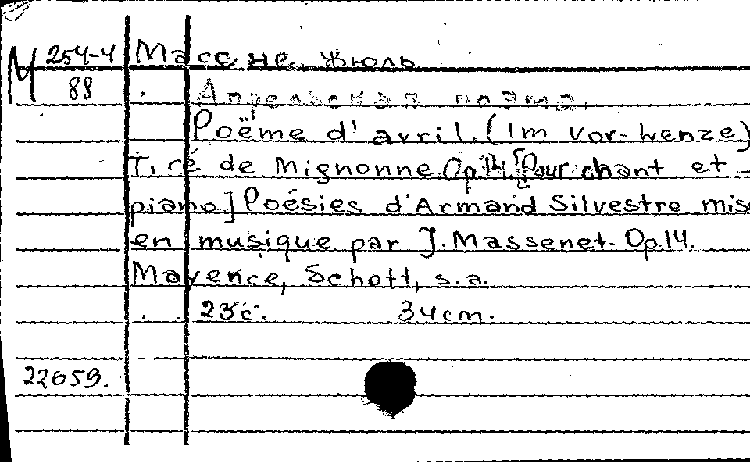 М 254-4 Массне, Жюль
88
Апрельская поэма.
Poëme d' avril. (Im Vor-Lenze)
Tiré de Mignonne Op 14. [Pour chant et
piano.] Poésies d'Armand Silvestre mise
en musique par J. Massenet. Op 14.
Mayence, Schott, s.a.
23c. 34cm.
22059.